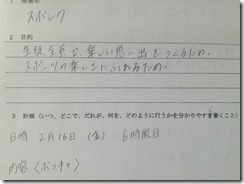 1 提案名
スポレク
2 目的
生徒全員で、楽しい思い出をつくるため。
スポーツの楽しさにふれるため。
3 計画（いつ、どこで、だれが、何を、どのように行うかを分かりやすく書くこと）
日時 2月16日（金） 6時限目
内容〈ボッチャ〉